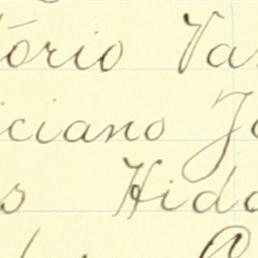 tório Va
iciano J
s Hida